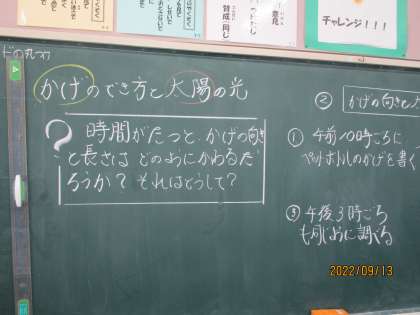 チャレンジ!!!
かげのでき方と太陽の光
? 時間がたつと、かげの向き
と長さは どのようにかわるだ
ろうか? それはどうして?
② かげの向きと
① 午前10時ごろに
ペットボトルのかげを書く
③ 午後3時ごろ
も同じように調べる
2022/09/13